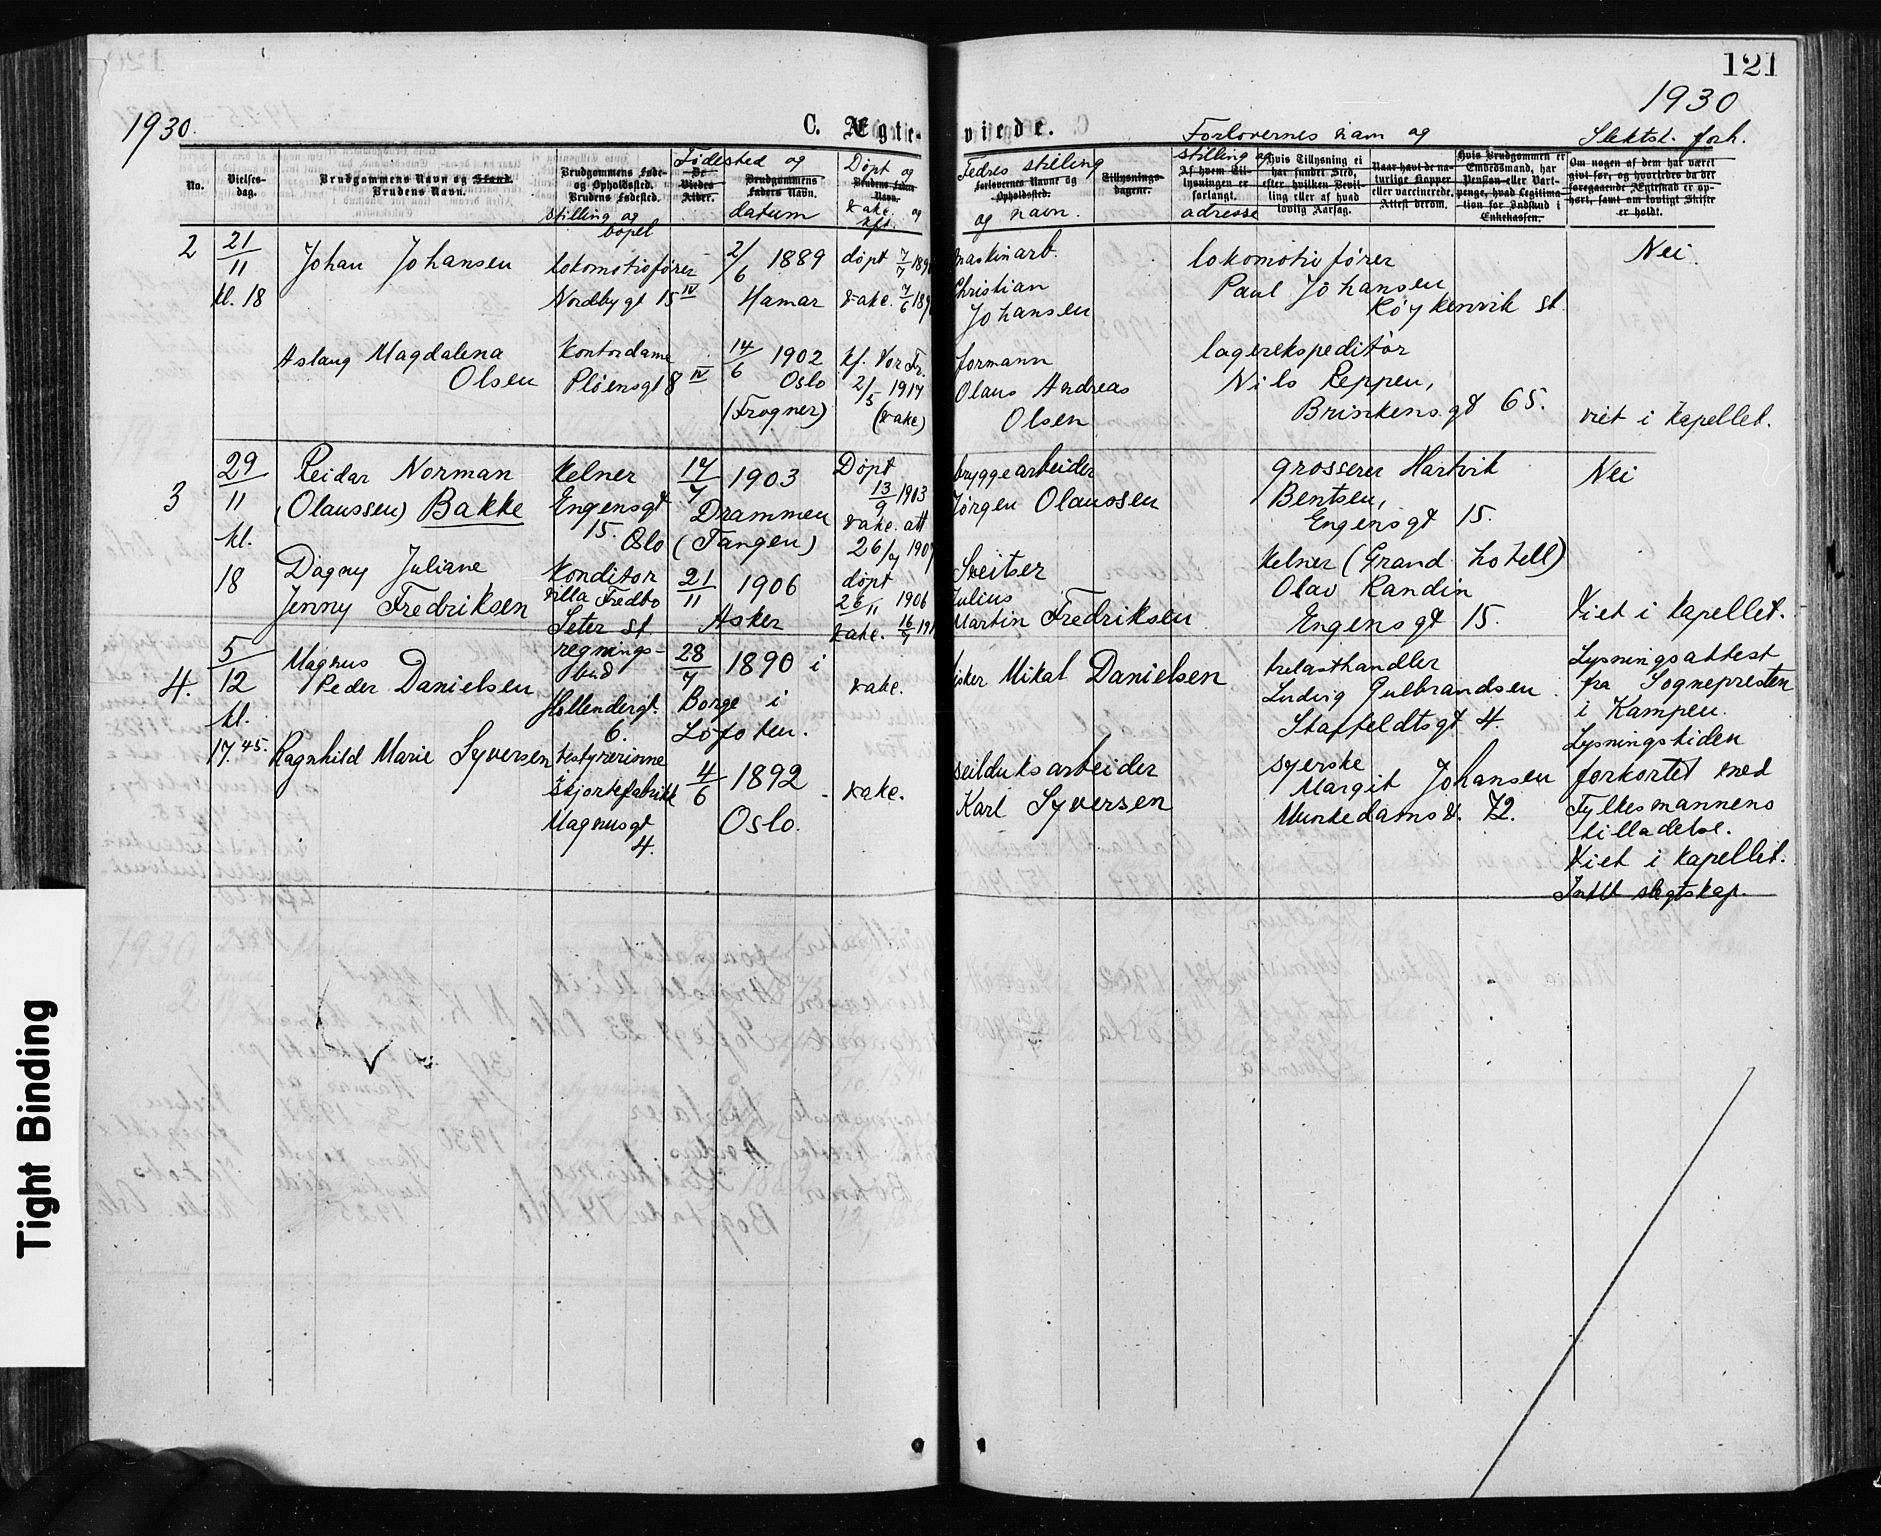 121
1930
1930.
C. Ægte-
viede.
Forlovernes navn og
Slektst. forh.
No.
Vielses-
dag.
Brudgommens Navn og Stand.
Brudens Navn.
Brudgommens Føde-
og Opholdssted.
Brudens Fødested.
stilling og
bopel
Fødested og
De
Viedes
Alder.
Brudgommens
Faders Navn.
datum
Døpt og
Brudens Faders
Navn.
vake. og
kft.
Fedres stilling
Forlovernes Navne og
Opholdssted.
og navn.
Tillysnings-
dagene.
stilling og
Af hvem Til-
lysningen er
forlangt.
adresse
Hvis Tillysning ei
har fundet Sted,
efter hvilken Bevil-
ling eller af hvad
lovlig Aarsag.
Naar havt de na-
turlige Kopper
eller vaccinerede,
Attest derom.
Hvis Brudgommen er
Embedsmand, har
Pension eller Vart-
penge, hvad Legitima-
tion for Indskud i
Enkekassen.
Om nogen af dem har været
gift før, og hvorledes da det
foregaaende Ægteskab er op-
hørt, samt om lovligt Skifte
er holdt.
2
21/11
kl. 18
Johan Johansen
lokomotivfører
Nordbygt 15 IV
2/6 1889
Hamar
døpt 7/7
vake. 7/6
maskinarb.
Christian
Johansen
lokomotivfører
Paul Johansen
Røykenvik st
Nei.
Aslaug Magdalena
Olsen
Kontordame
Pløensgt 8 IV
14/6 1902
Oslo
(Frogner)
kf. Vor Fr.
2/5 1917
(vake)
formann
Olaus Andreas
Olsen
lagerekspeditør
Nils Reppen,
Brinkensgt 65.
viet i kapellet.
3
29/11
kl.
18
Reidar Norman
(Olaussen) Bakke
Kelner
Engensgt
15. Oslo
17/7 1903
Drammen
(Tangen)
Døpt
13/9 1903
vake. att
26/7
bryggearbeider
Jørgen Olaussen
grosserer Hartvik
Bentsen,
Engensgt 15.
Nei
Dagny Juliane
Jenny Fredriksen
Konditor
villa Fredbo
Seter st
21/11 1906
Asker
døpt
26/11 1906
vake. 16/7
Sveitser
Julius
Martin Fredriksen
Kelner (Grand hotell)
Olav Randin
Engensgt 15.
Viet i kapellet.
4.
5/12
kl.
17.45.
Magnus
Peder Danielsen
regnings-
bud
Hollendergt.
6.
28/7 1890 i
Borge i
Lofoten.
vake.
fisker Mikal Danielsen
trelasthandler
Ludvig Gulbrandsen
Staffeldtsgt 4.
Lysningsattest
fra Sognepresten
i Kampen.
Lysningstiden
forkortet med
Fylkesmannens
tilladelse.
Viet i kapellet.
Intet slegtskap.
Ragnhild Marie Syversen
bestyrerinne
i skjortefabrikk
Magnusgt
4.
4/6 1892
Oslo.
vake.
seilduksarbeider
Karl Syversen
syerske
Margit Johansen
Munkedamsv. 72.
Tight Binding